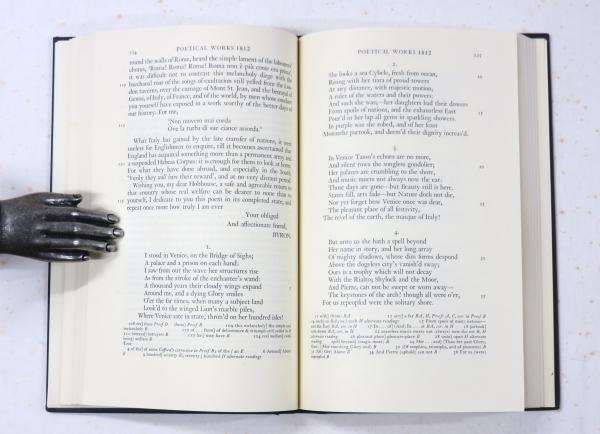 114 POETICAL WORKS 1812
round the walls of Rome, heard the simple lament of the labourers'
chorus, 'Roma! Roma! Roma! Roma non è più come era prima',
it was difficult not to contrast this melancholy dirge with the
bacchanal roar of the songs of exultation still yelled from the Lon-
110 don taverns, over the carnage of Mont St. Jean, and the betrayal of
Genoa, of Italy, of France, and of the world, by men whose conduct
you yourself have exposed in a work worthy of the better days of
our history. For me,
'Non movero mai corda
115 Ove la turba di sue ciance assorda.'
What Italy has gained by the late transfer of nations, it were
useless for Englishmen to enquire, till it becomes ascertained that
England has acquired something more than a permanent army and
a suspended Habeas Corpus; it is enough for them to look at home.
120 For what they have done abroad, and especially in the South,
'Verily they will have their reward', and at no very distant period.
Wishing you, my dear Hobhouse, a safe and agreeable return to
that country whose real welfare can be dearer to none than to
125 yourself, I dedicate to you this poem in its completed state, and
repeat once more how truly I am ever
Your obliged
And affectionate friend,
BYRON.
1.
I stood in Venice, on the Bridge of Sighs;
A palace and a prison on each hand:
I saw from out the wave her structures rise
As from the stroke of the enchanter's wand:
A thousand years their cloudy wings expand 5
Around me, and a dying Glory smiles
O'er the far times, when many a subject land
Look'd to the winged Lion's marble piles,
Where Venice sate in state, thron'd on her hundred isles!
POETICAL WORKS 1812 125
2.
She looks a sea Cybele, fresh from ocean, 10
Rising with her tiara of proud towers
At airy distance, with majestic motion,
A ruler of the waters and their powers:
And such she was;—her daughters had their dowers
From spoils of nations, and the exhaustless East 15
Pour'd in her lap all gems in sparkling showers.
In purple was she robed, and of her feast
Monarchs partook, and deem'd their dignity increas'd.
3.
In Venice Tasso's echoes are no more,
And silent rows the songless gondolier; 20
Her palaces are crumbling to the shore,
And music meets not always now the ear:
Those days are gone—but Beauty still is here.
States fall, arts fade—but Nature doth not die,
Nor yet forget how Venice once was dear, 25
The pleasant place of all festivity,
The revel of the earth, the masque of Italy!
4.
But unto us she hath a spell beyond
Her name in story, and her long array
Of mighty shadows, whose dim forms despond 30
Above the dogeless city's vanish'd sway;
Ours is a trophy which will not decay
With the Rialto; Shylock and the Moor,
And Pierre, can not be swept or worn away—
The keystones of the arch! though all were o'er, 35
For us repeopled were the solitary shore.